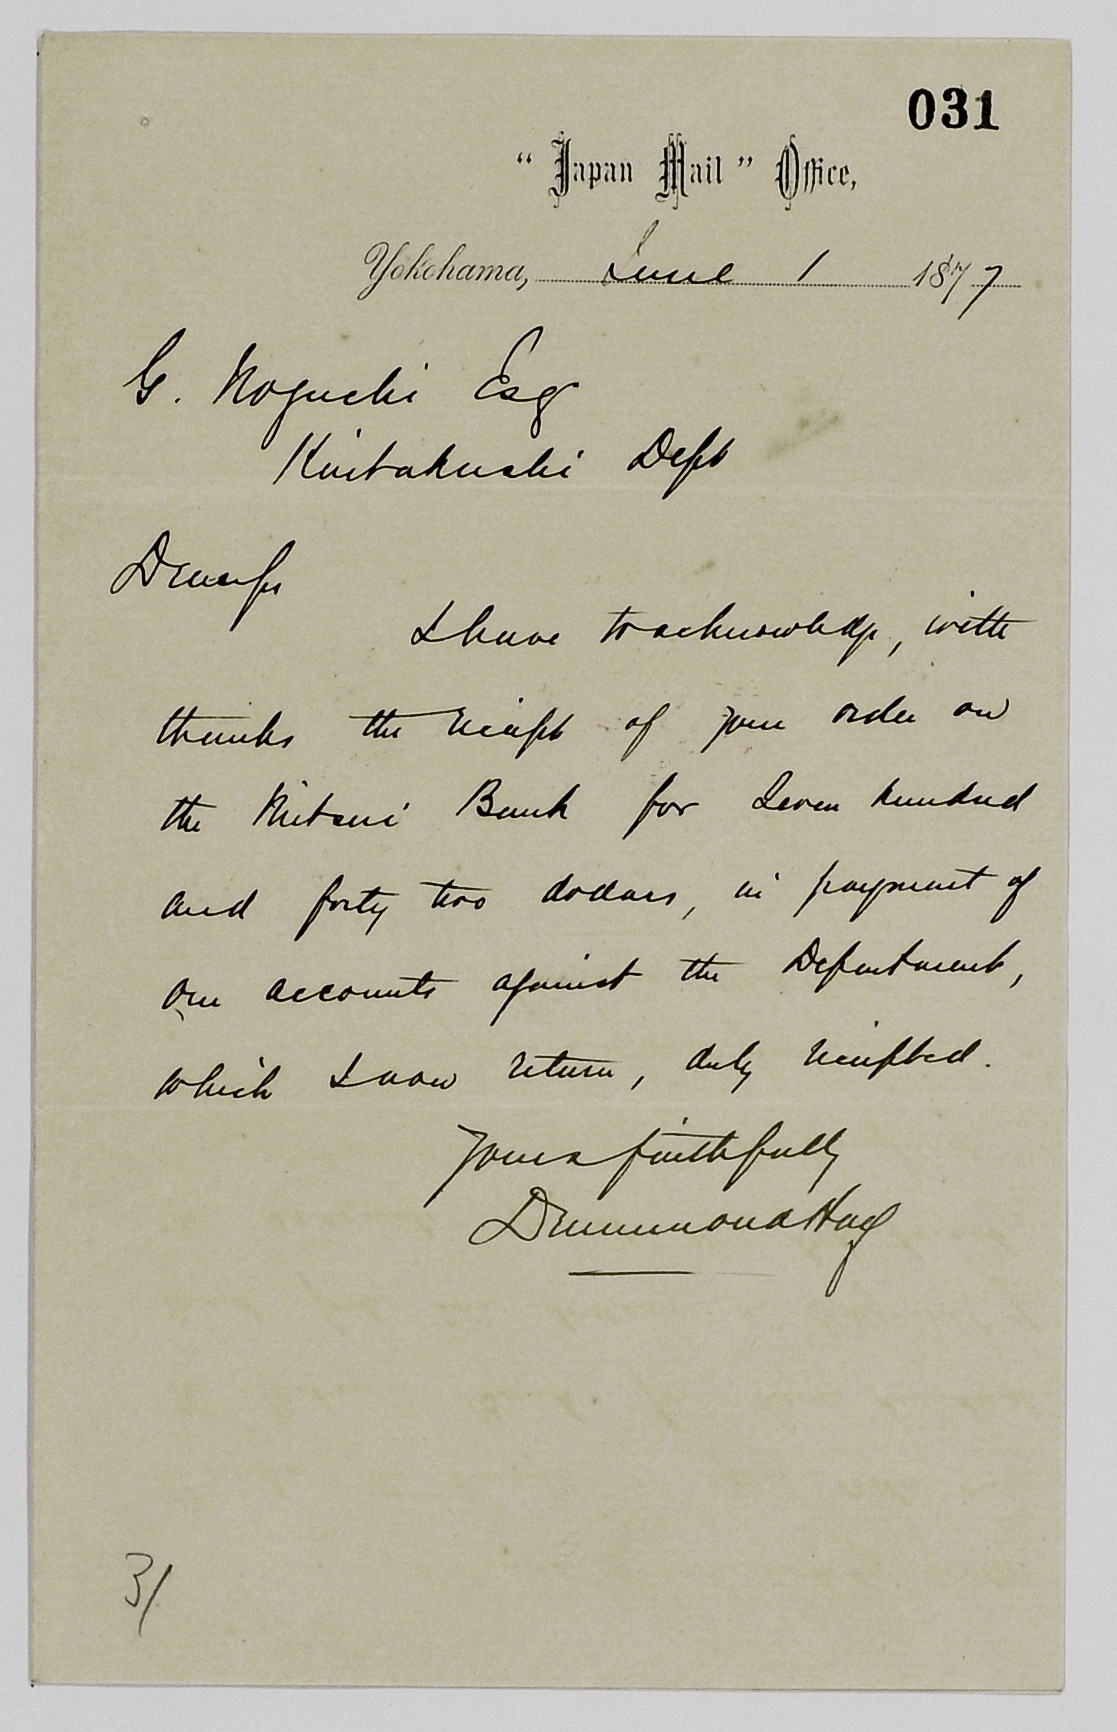 031
"Japan Mail" Office,
Yokohama, June 1 1877
G. Noguchi Esq
Kaitakushi Dept
Dear Sir
I have to acknowledge, with
thanks the receipt of your order on
the Mitsui Bank for Seven hundred
and forty two dollars, in payment of
our accounts against the Department,
which I now return, duly receipted.
Yours faithfully
Drummond Hay
31